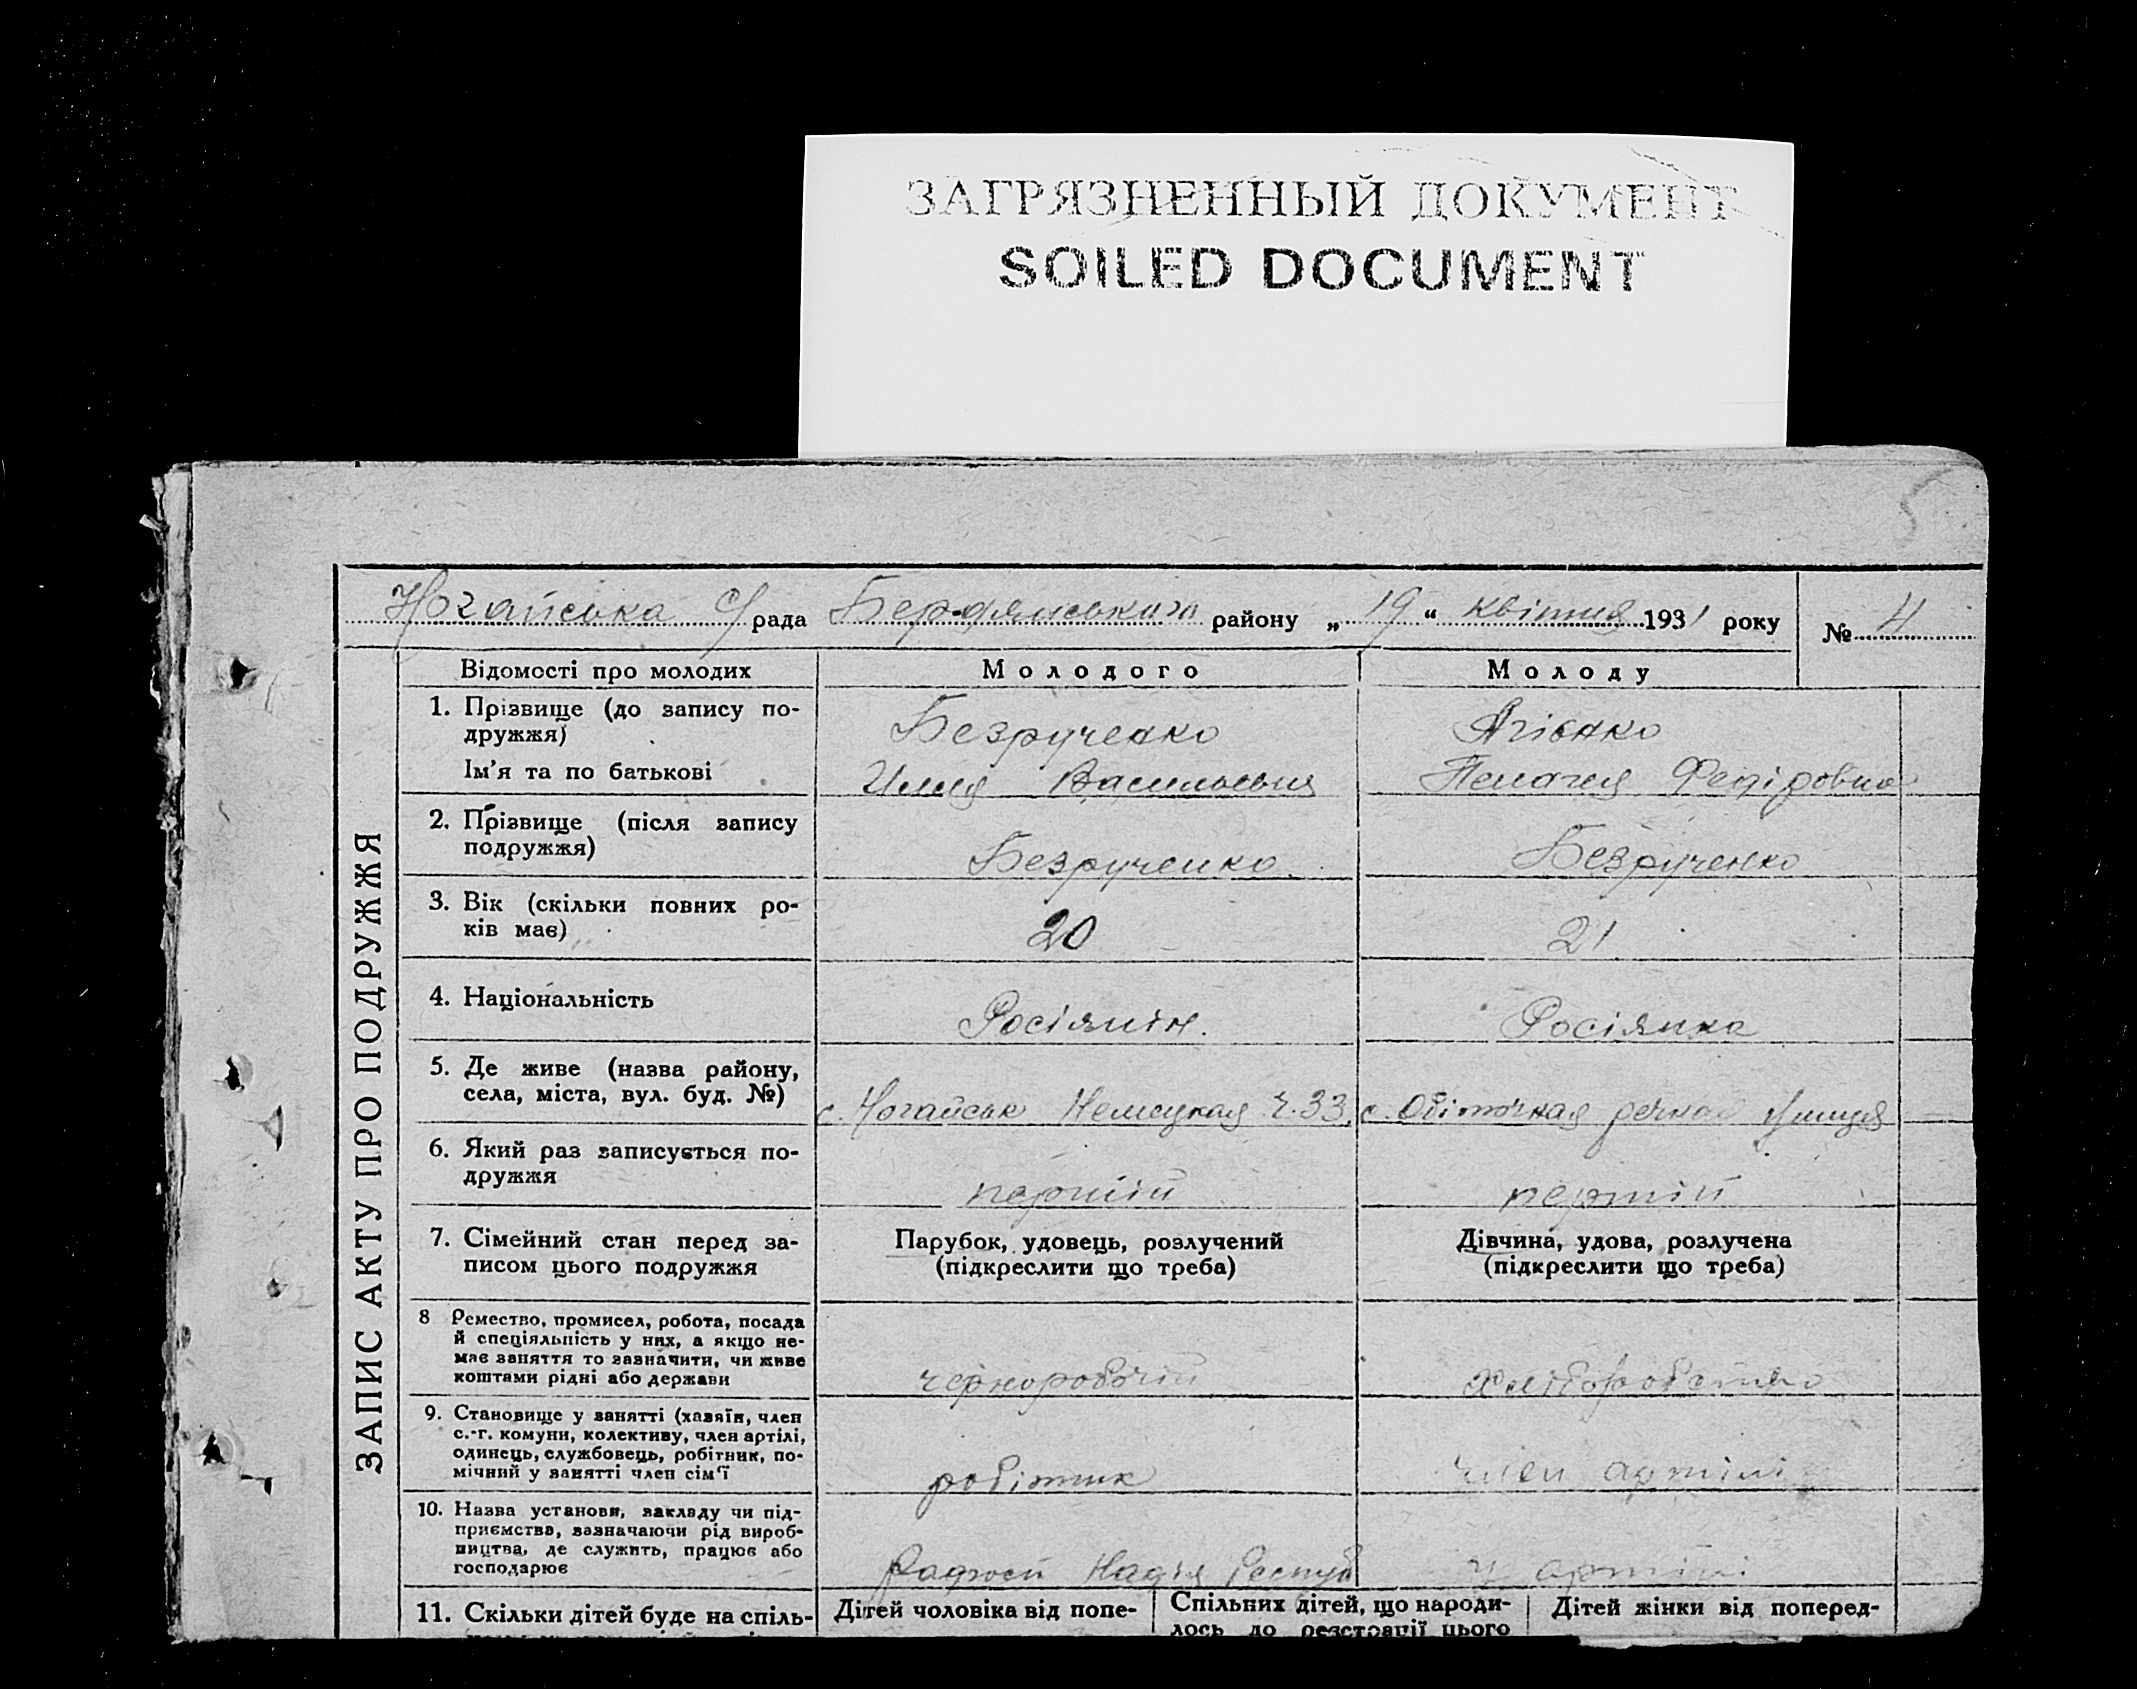 ЗАГРЯЗНЕННЫЙ ДОКУМЕНТ
SOILED DOCUMENT
5
Ногайська с/рада Бердянського району „19“ квітня 1931 року № 4
ЗАПИС АКТУ ПРО ПОДРУЖЖЯ
Відомості про молодих Молодого Молоду
1. Прізвище (до запису по-
дружжя) Безрученко
Ім'я та по батькові Илля Васильевич Пелагея Федіровна
2. Прізвище (після запису
подружжя) Безрученко Безрученко
3. Вік (скільки повних ро-
ків має) 20 21
4. Національність Росіянін. Росіянка
5. Де живе (назва району,
села, міста, вул. буд. №) с. Ногайськ Немецкая ч. 33. с. Обіточная речная улиця
6. Який раз записується по-
дружжя перший перший
7. Сімейний стан перед за- Парубок, удовець, розлучений Дівчина, удова, розлучена
писом цього подружжя (підкреслити що треба) (підкреслити що треба)
8 Ремество, промисел, робота, посада
й спеціяльність у них, а якщо не-
має заняття то зазначити, чи живе
коштами рідні або держави черноробочій хліборобство
9. Становище у занятті (хазяїн, член
с.-г. комуни, колективу, член артілі,
одинець, службовець, робітник, по-
мічний у занятті член сім'ї робітник член артілі
10. Назва установи, закладу чи під-
приємства, зазначаючи рід вироб-
ництва, де служить, працює або
господарює у артілі
11. Скільки дітей буде на спіль- Дітей чоловіка від попе- Спільних дітей, що народи- Дітей жінки від поперед-
лось до реєстрації цього